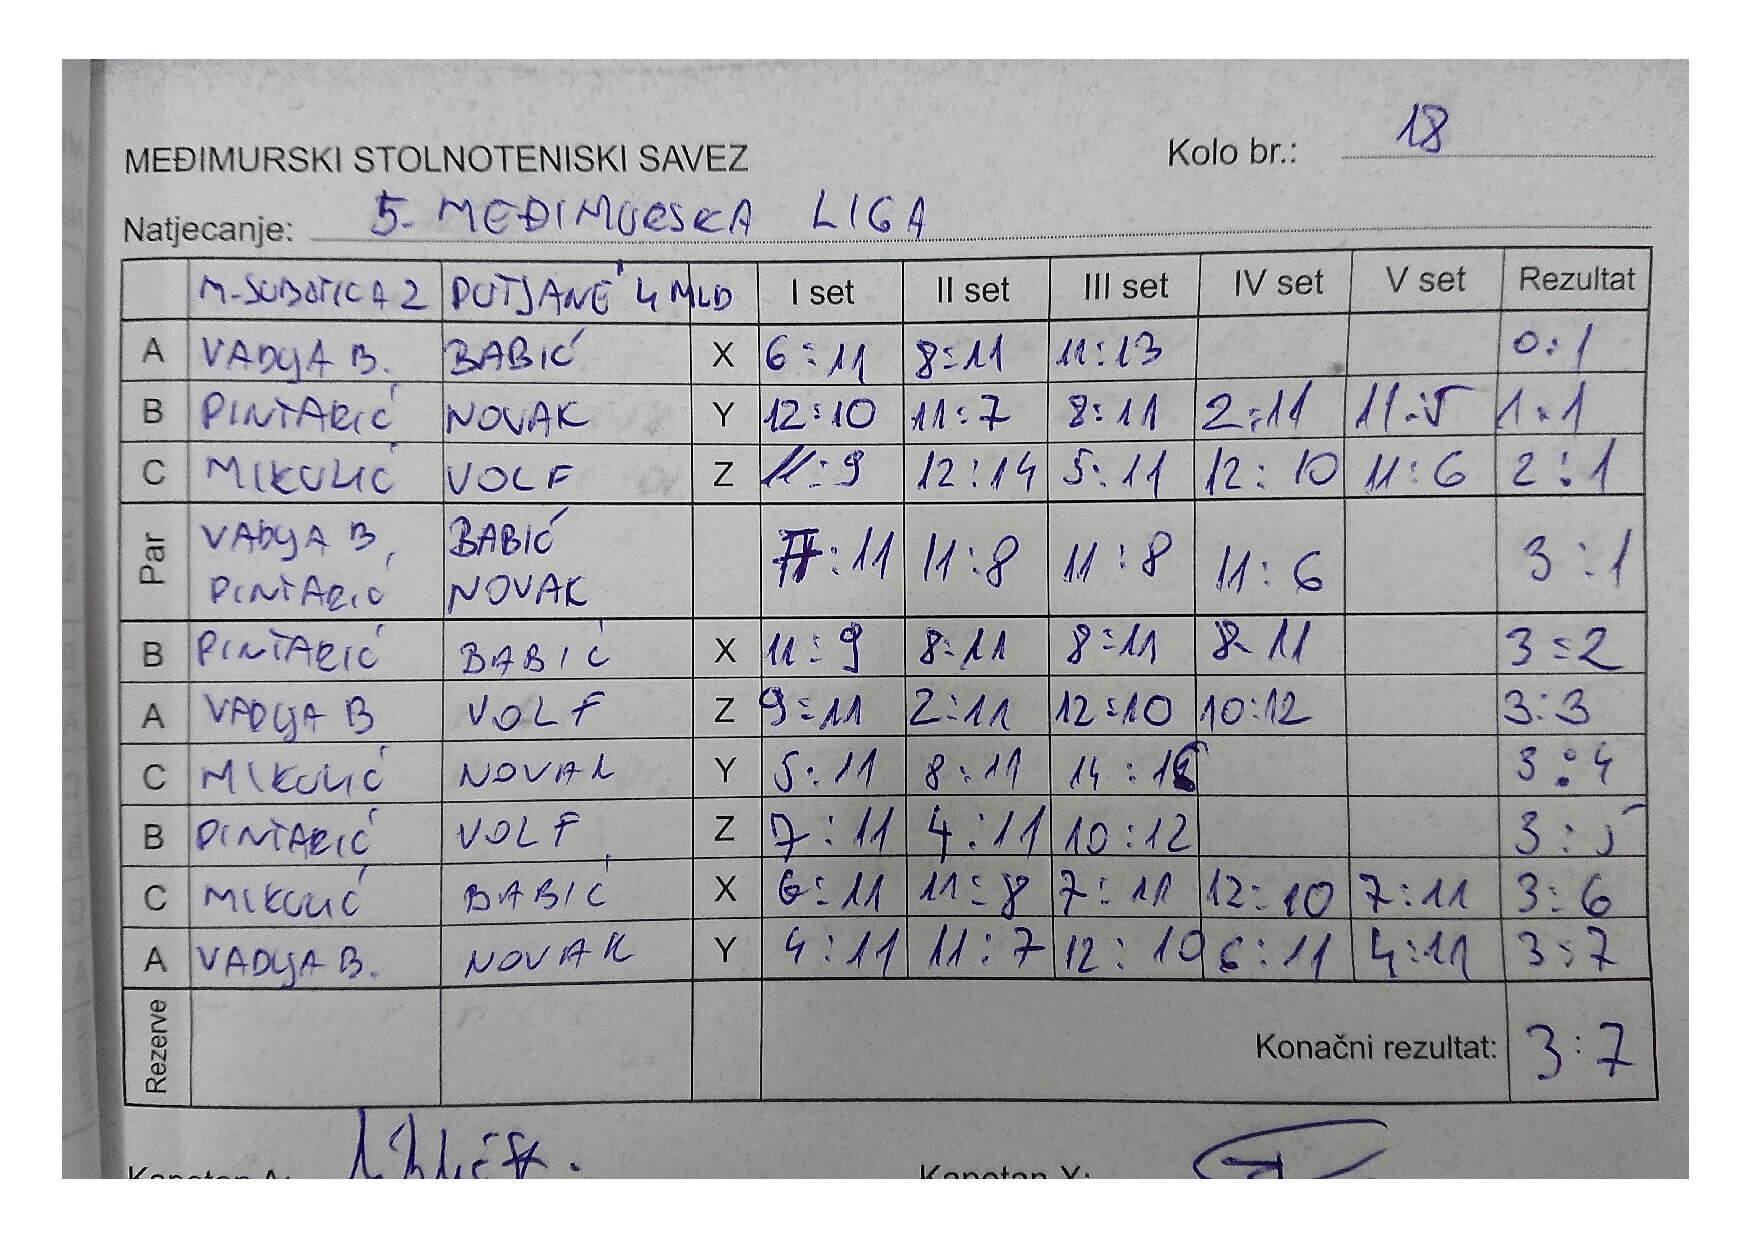 MEĐIMURSKI STOLNOTENISKI SAVEZ Kolo br.: 18
Natjecanje: 5. MEĐIMURSKA LIGA
M-SUBOTICA 2 PUTJANE 4 MLD I set II set III set IV set V set Rezultat
A VADLJA B. BABIĆ X 6:11 8:11 11:13 0:1
B PINTARIĆ NOVAK Y 12:10 11:7 8:11 2:11 11:5 1:1
C MIKULIĆ VOLF Z 11:9 12:14 5:11 12:10 11:6 2:1
Par VADLJA B, BABIĆ 7:11 11:8 11:8 11:6 3:1
PINTARIĆ NOVAK
B PINTARIĆ BABIĆ X 11:9 8:11 8:11 8-11 3:2
A VADLJA B VOLF Z 9:11 2:11 12:10 10:12 3:3
C MIKULIĆ NOVAK Y 5:11 8:11 14:16 3:4
B PINTARIĆ VOLF Z 7:11 4:11 10:12 3:5
C MIKULIĆ BABIĆ X 6:11 11:8 7:11 12:10 7:11 3:6
A VADLJA B. NOVAK Y 4:11 11:7 12:10 6:11 4:11 3:7
Rezerve Konačni rezultat: 3:7
Kapetan A: Kapetan Y: